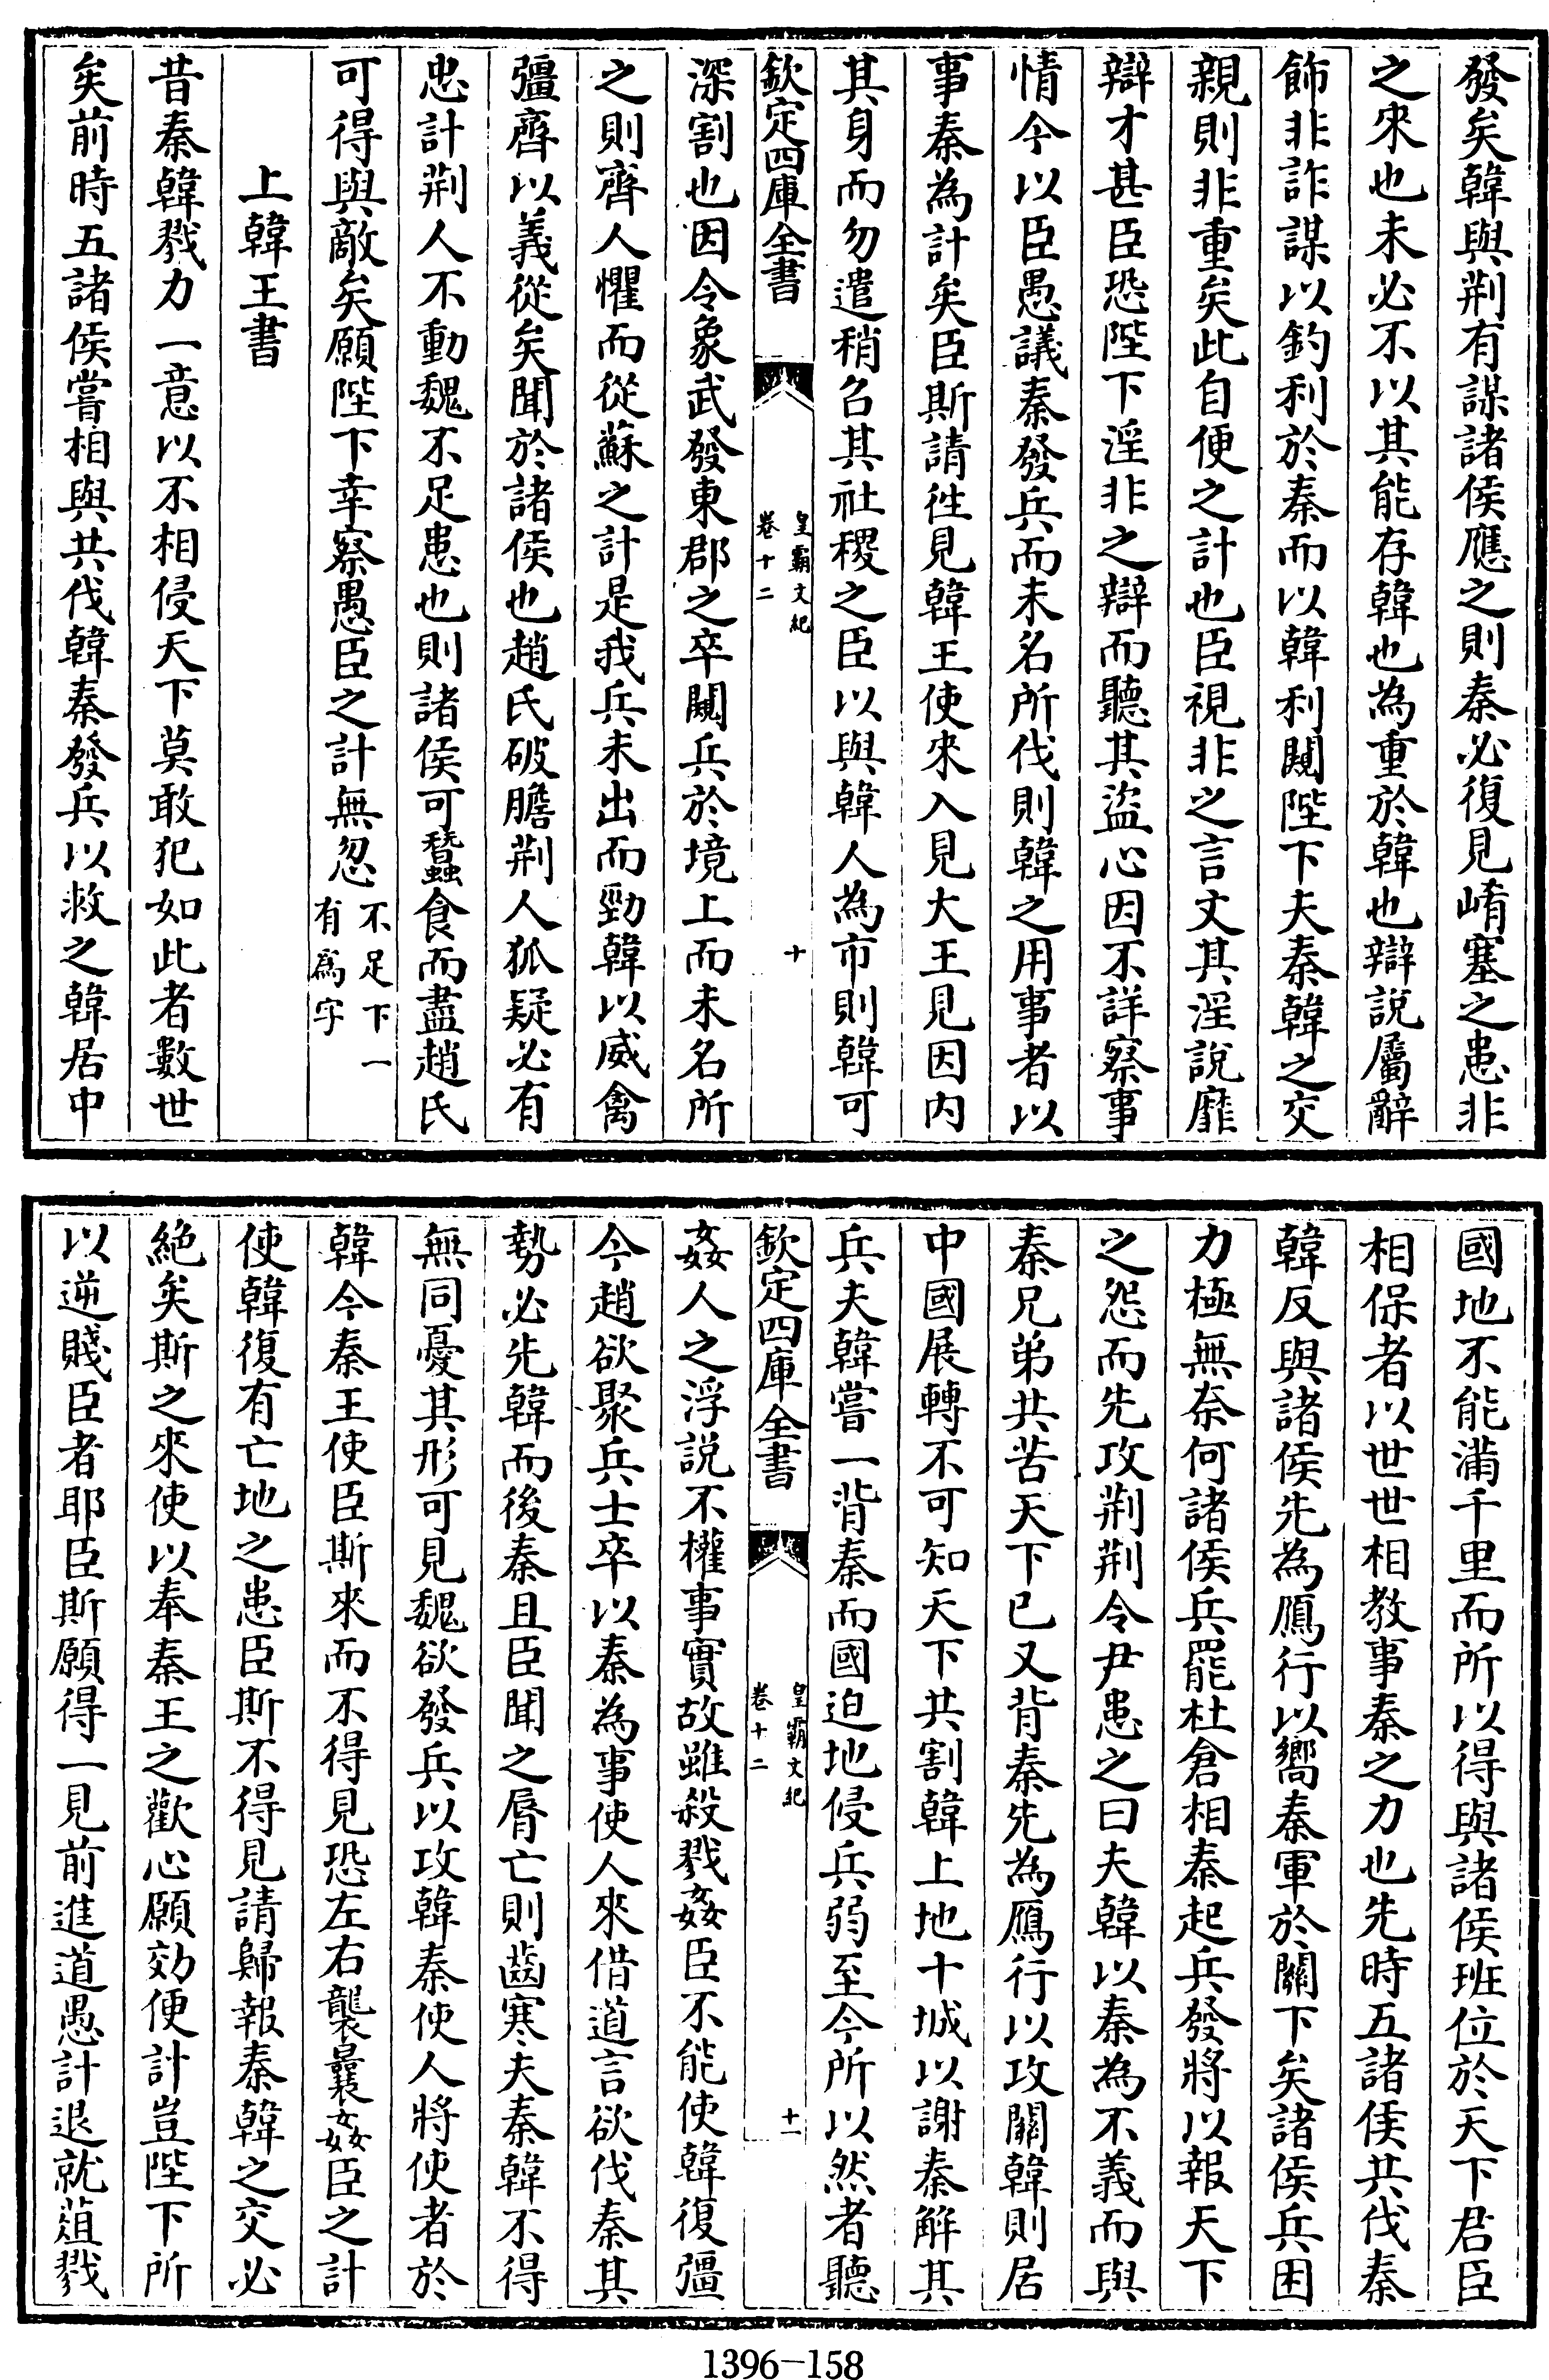 發矣韓與荆有謀諸侯應之則秦必復見崤塞之患非
之來也未必不以其能存韓也為重於韓也辯說屬辭
飾非詐謀以釣利於秦而以韓利闚陛下夫秦韓之交
親則非重矣此自便之計也臣視非之言文其淫說靡
辯才甚臣恐陛下淫非之辯而聽其盜心因不詳察事
情今以臣愚議秦發兵而未名所伐則韓之用事者以
事秦為計矣臣斯請徃見韓王使來入見大王見因內
其身而勿遣稍召其社稷之臣以與韓人為市則韓可
欽定四庫全書
皇霸文紀
卷十二
十
深割也因令象武發東郡之卒闚兵於境上而未名所
之則齊人懼而從蘇之計是我兵未出而勁韓以威禽
彊齊以義從矣聞於諸侯也趙氏破膽荆人狐疑必有
忠計荆人不動魏不足患也則諸侯可蠶食而盡趙氏
可得與敵矣願陛下幸察愚臣之計無忽
不足下一
有為字
上韓王書
昔秦韓戮力一意以不相侵天下莫敢犯如此者數世
矣前時五諸侯嘗相與共伐韓秦發兵以救之韓居中
國地不能滿千里而所以得與諸侯班位於天下君臣
相保者以世世相教事秦之力也先時五諸侯共伐秦
韓反與諸侯先為鴈行以嚮秦軍於關下矣諸侯兵困
力極無奈何諸侯兵罷杜倉相秦起兵發將以報天下
之怨而先攻荆荆令尹患之曰夫韓以秦為不義而與
秦兄弟共苦天下已又背秦先為鴈行以攻關韓則居
中國展轉不可知天下共割韓上地十城以謝秦解其
兵夫韓嘗一背秦而國迫地侵兵弱至今所以然者聽
欽定四庫全書
皇霸文紀
卷十二
十一
姦人之浮說不權事實故雖殺戮姦臣不能使韓復彊
今趙欲聚兵士卒以秦為事使人來借道言欲伐秦其
勢必先韓而後秦且臣聞之脣亡則齒寒夫秦韓不得
無同憂其形可見魏欲發兵以攻韓秦使人將使者於
韓今秦王使臣斯來而不得見恐左右襲曩姦臣之計
使韓復有亡地之患臣斯不得見請歸報秦韓之交必
絕矣斯之來使以奉秦王之歡心願効便計豈陛下所
以逆賤臣者耶臣斯願得一見前進道愚計退就葅戮
1396-158